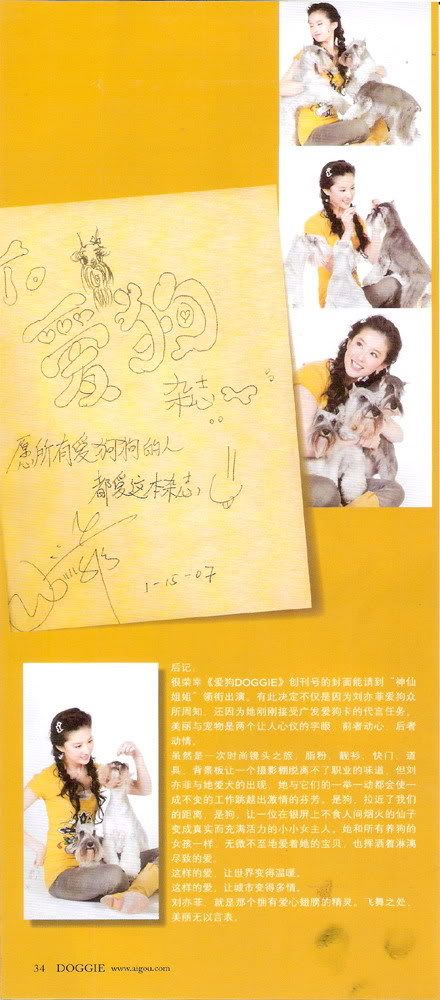 To
爱狗
杂志
愿所有爱狗狗的人
都爱这本杂志,
1-15-07
后记:
很荣幸《爱狗DOGGIE》创刊号的封面能请到“神仙
姐姐”领衔出演。有此决定不仅是因为刘亦菲爱狗众
所周知,还因为她刚刚接受广发爱狗卡的代言任务。
美丽与宠物是两个让人心仪的字眼,前者动心、后者
动情。
虽然是一次时尚镜头之旅,脂粉、靓衫、快门、道
具、背景板让一个摄影棚脱离不了职业的味道,但刘
亦菲与她爱犬的出现,她与它们的一举一动都会使一
成不变的工作跳越出激情的芬芳。是狗,拉近了我们
的距离,是狗,让一位在银屏上不食人间烟火的仙子
变成真实而充满活力的小小女主人。她和所有养狗的
女孩一样,无微不至地爱着她的宝贝,也挥洒着淋漓
尽致的爱。
这样的爱,让世界变得温暖。
这样的爱,让城市变得多情。
刘亦菲,就是那个拥有爱心翅膀的精灵。飞舞之处,
美丽无以言表。
34 DOGGIE www.aigou.com